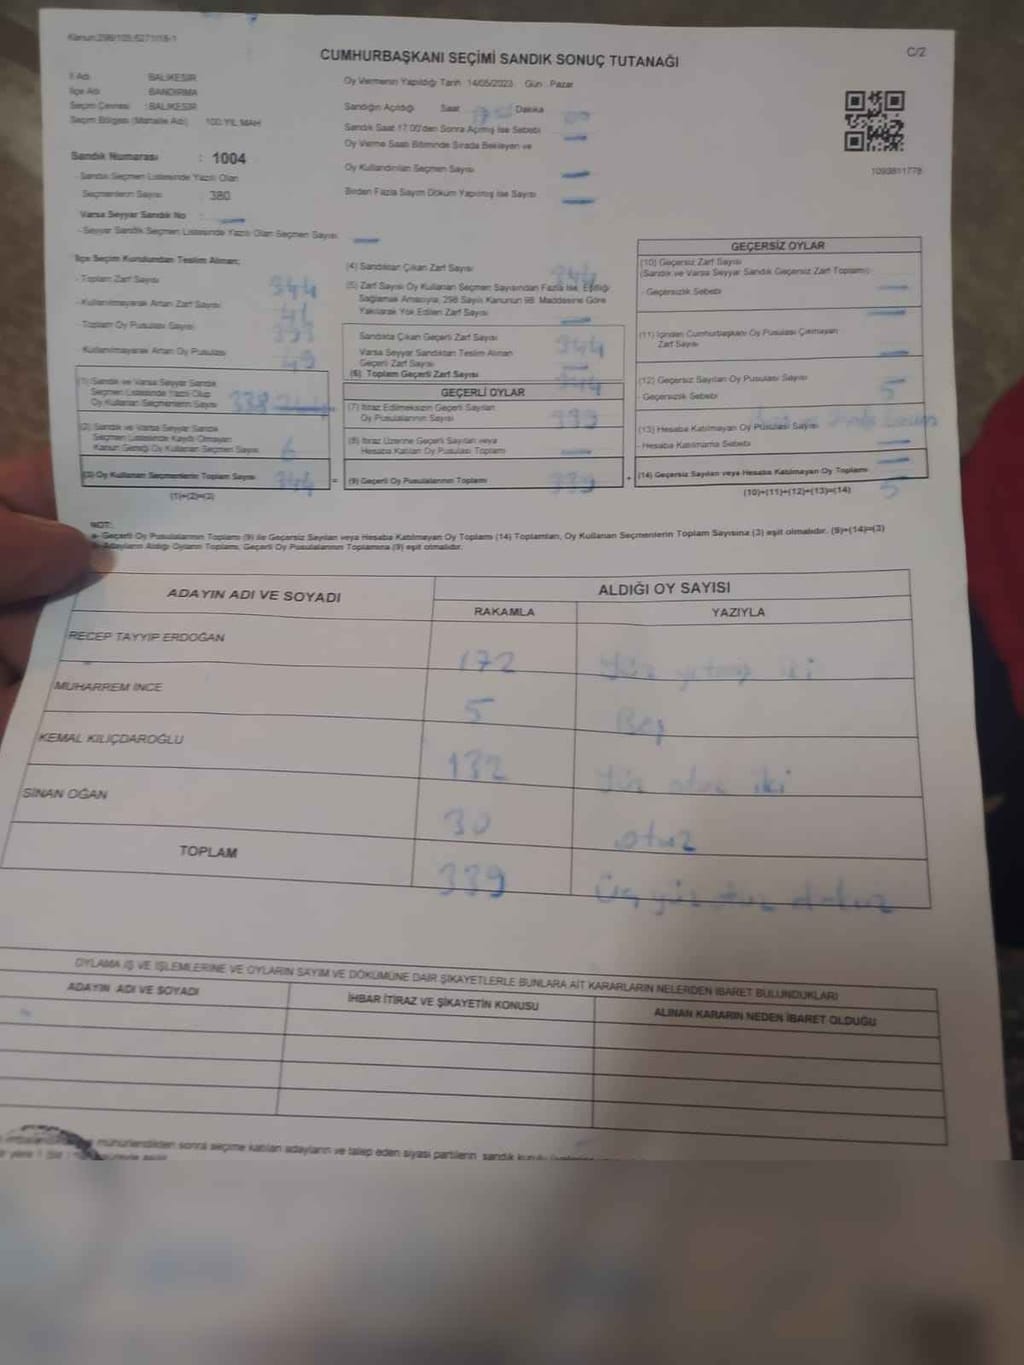 Kanun:298/105;6271/18-1
CUMHURBAŞKANI SEÇİMİ SANDIK SONUÇ TUTANAĞI
C/2
İl Adı BALIKESİR
İlçe Adı BANDIRMA
Seçim Çevresi : BALIKESİR
Seçim Bölgesi (Mahalle Adı) 100.YIL MAH
Sandık Numarası : 1004
- Sandık Seçmen Listesinde Yazılı Olan
Seçmenlerin Sayısı : 380
Varsa Seyyar Sandık No
- Seyyar Sandık Seçmen Listesinde Yazılı Olan Seçmen Sayısı
Oy Vermenin Yapıldığı Tarih : 14/05/2023 Gün : Pazar
Sandığın Açıldığı Saat Dakika
Sandık Saat 17.00'den Sonra Açılmış İse Sebebi
Oy Verme Saati Bitiminde Sırada Bekleyen ve
Oy Kullandırılan Seçmen Sayısı
Birden Fazla Sayım Döküm Yapılmış İse Sayısı
1093811778
İlçe Seçim Kurulundan Teslim Alınan;
- Toplam Zarf Sayısı
- Kullanılmayarak Artan Zarf Sayısı
- Toplam Oy Pusulası Sayısı
- Kullanılmayarak Artan Oy Pusulası 49
(1) Sandık ve Varsa Seyyar Sandık
Seçmen Listesinde Yazılı Olup
Oy Kullanan Seçmenlerin Sayısı 338
(2) Sandık ve Varsa Seyyar Sandık
Seçmen Listesinde Kaydı Olmayan
Kanun Gereği Oy Kullanan Seçmen Sayısı 6
(3) Oy Kullanan Seçmenlerin Toplam Sayısı 344
(1)+(2)=(3)
(4) Sandıktan Çıkan Zarf Sayısı 344
(5) Zarf Sayısı Oy Kullanan Seçmen Sayısından Fazla İse, Eşitliği
Sağlamak Amacıyla, 298 Sayılı Kanunun 98. Maddesine Göre
Yakılarak Yok Edilen Zarf Sayısı
Sandıkta Çıkan Geçerli Zarf Sayısı 344
Varsa Seyyar Sandıktan Teslim Alınan
Geçerli Zarf Sayısı
(6) Toplam Geçerli Zarf Sayısı 344
GEÇERLİ OYLAR
(7) İtiraz Edilmeksizin Geçerli Sayılan
Oy Pusulalarının Sayısı 339
(8) İtiraz Üzerine Geçerli Sayılan veya
Hesaba Katılan Oy Pusulası Toplamı
(9) Geçerli Oy Pusulalarının Toplamı 339
GEÇERSİZ OYLAR
(10) Geçersiz Zarf Sayısı
(Sandık ve Varsa Seyyar Sandık Geçersiz Zarf Toplamı)
- Geçersizlik Sebebi
(11) İçinden Cumhurbaşkanı Oy Pusulası Çıkmayan
Zarf Sayısı
(12) Geçersiz Sayılan Oy Pusulası Sayısı 5
- Geçersizlik Sebebi
(13) Hesaba Katılmayan Oy Pusulası Sayısı
- Hesaba Katılmama Sebebi
(14) Geçersiz Sayılan veya Hesaba Katılmayan Oy Toplamı 5
(10)+(11)+(12)+(13)=(14)
NOT:
a- Geçerli Oy Pusulalarının Toplamı (9) ile Geçersiz Sayılan veya Hesaba Katılmayan Oy Toplamı (14) Toplamları, Oy Kullanan Seçmenlerin Toplam Sayısına (3) eşit olmalıdır. (9)+(14)=(3)
Adayların Aldığı Oyların Toplamı, Geçerli Oy Pusulalarının Toplamına (9) eşit olmalıdır.
ADAYIN ADI VE SOYADI ALDIĞI OY SAYISI
RAKAMLA YAZIYLA
RECEP TAYYİP ERDOĞAN 172 Yüz yetmiş iki
MUHARREM İNCE 5 Beş
KEMAL KILIÇDAROĞLU 132 Yüz otuz iki
SİNAN OĞAN 30 otuz
TOPLAM 339 Üç yüz otuz dokuz
OYLAMA İŞ VE İŞLEMLERİNE VE OYLARIN SAYIM VE DÖKÜMÜNE DAİR ŞİKAYETLERLE BUNLARA AİT KARARLARIN NELERDEN İBARET BULUNDUKLARI
ADAYIN ADI VE SOYADI İHBAR İTİRAZ VE ŞİKAYETİN KONUSU ALINAN KARARIN NEDEN İBARET OLDUĞU
mühürlendikten sonra seçime katılan adayların ve talep eden siyasi partilerin sandık kurulu